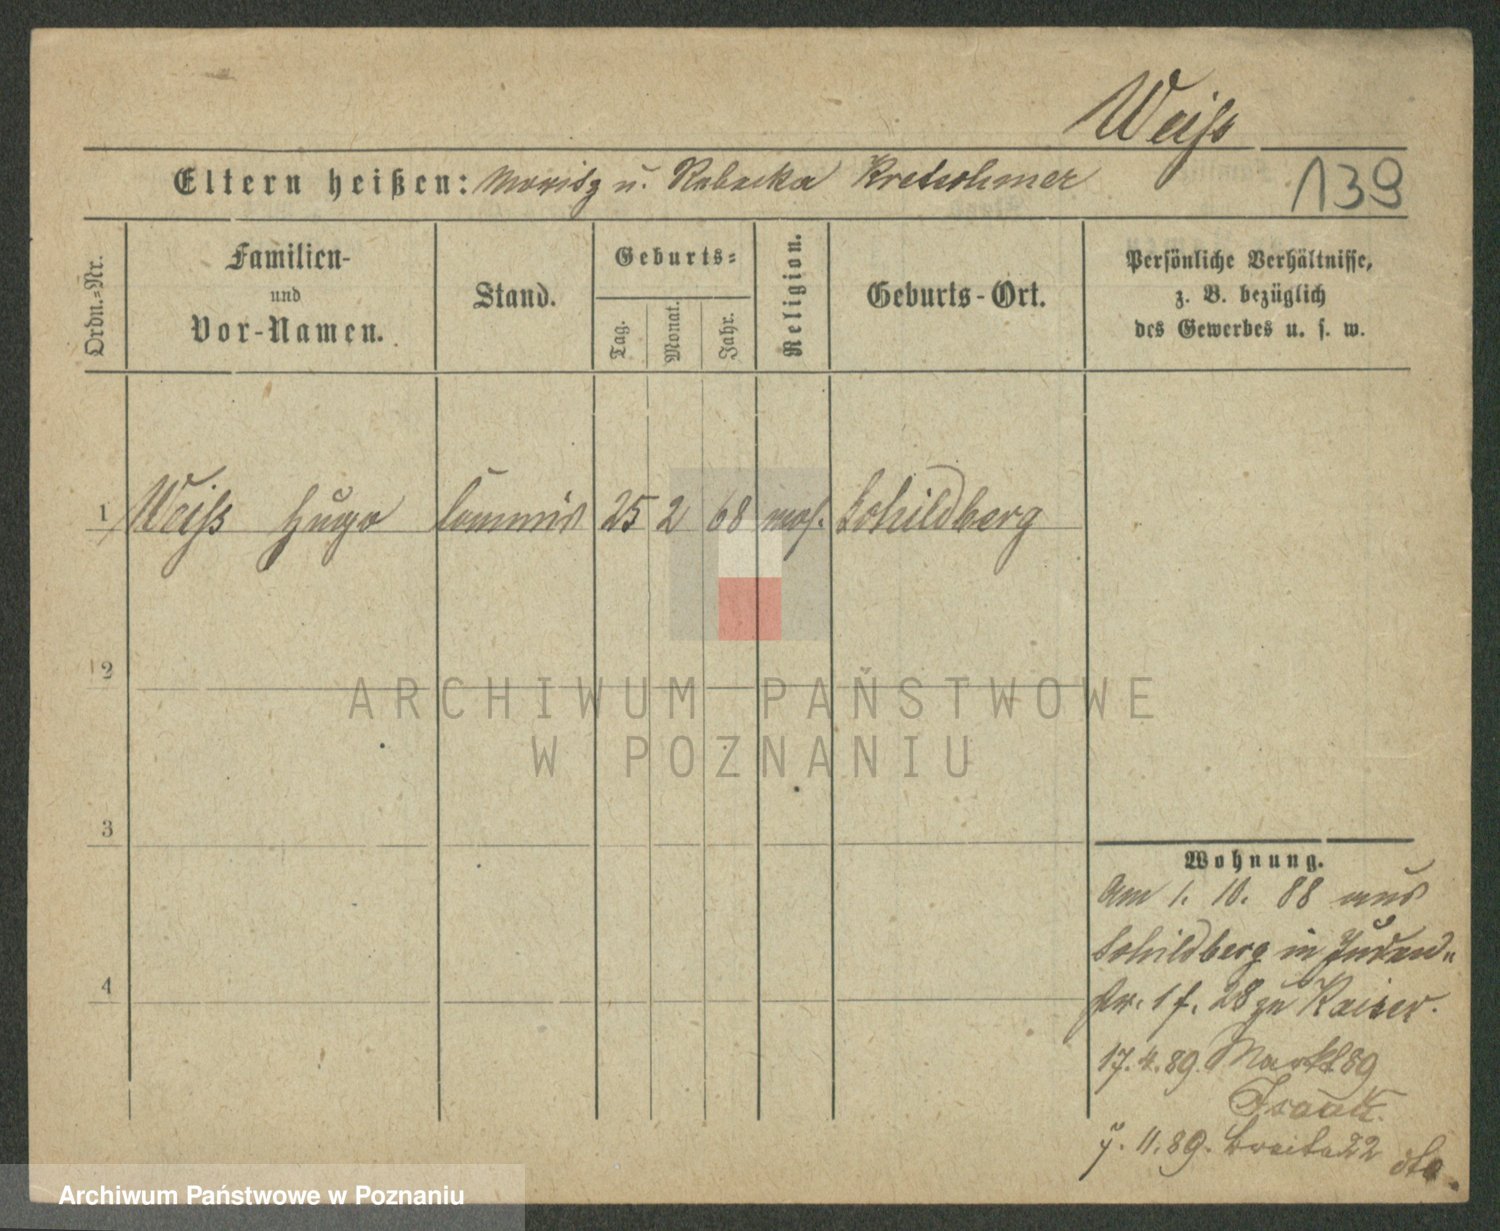 Weiſs
Eltern heißen: Moritz u. Rebecka Kretschmer
139
Ordn.-Nr.
Familien-
und
Vor-Namen.
Stand.
Geburts-
Tag.
Monat.
Jahr.
Religion.
Geburts-Ort.
Persönliche Verhältnisse,
z. B. bezüglich
des Gewerbes u. s. w.
1 Weiſs Hugo Commis 25 2 68 mos. Schildberg
2
3
4
ARCHIWUM PAŃSTWOWE
W POZNANIU
Wohnung.
Am 1. 10. 88 aus
Schildberg in Juden-
str. 1 f. 28 zu Kaiser.
17. 4. 89. Markt 89
Isaak.
11. 89. Breite 22
Archiwum Państwowe w Poznaniu